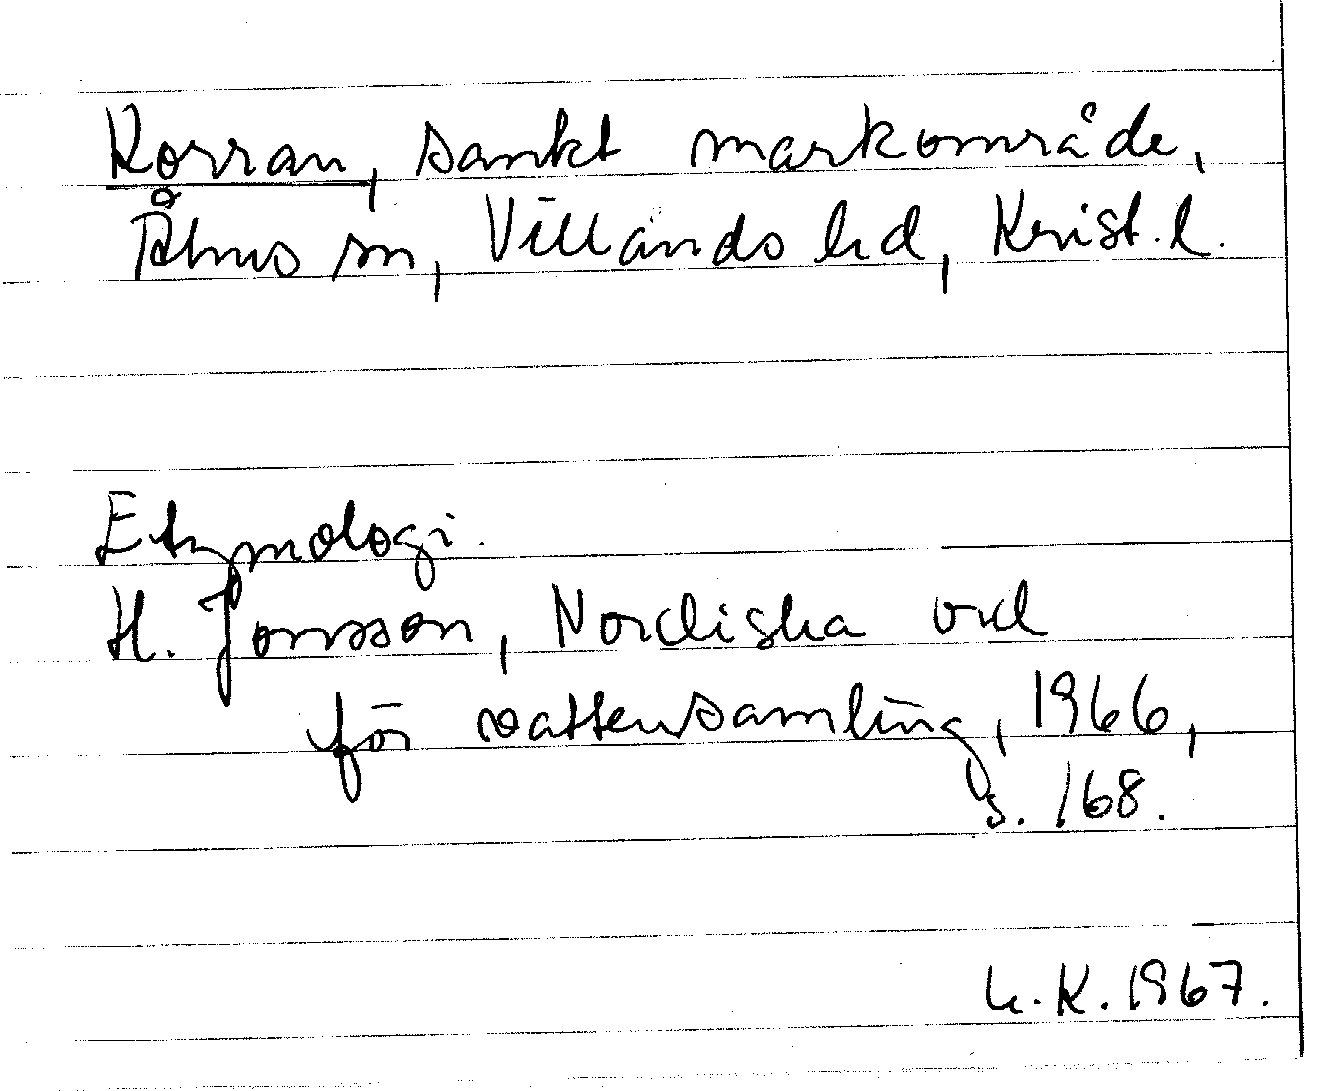 Korran, sankt markområde,
Åhus sn, Villands hd, Krist. l.
Etymologi.
H. Jonsson, Nordiska ord
för vattensamling, 1966,
s. 168.
K. 1967.